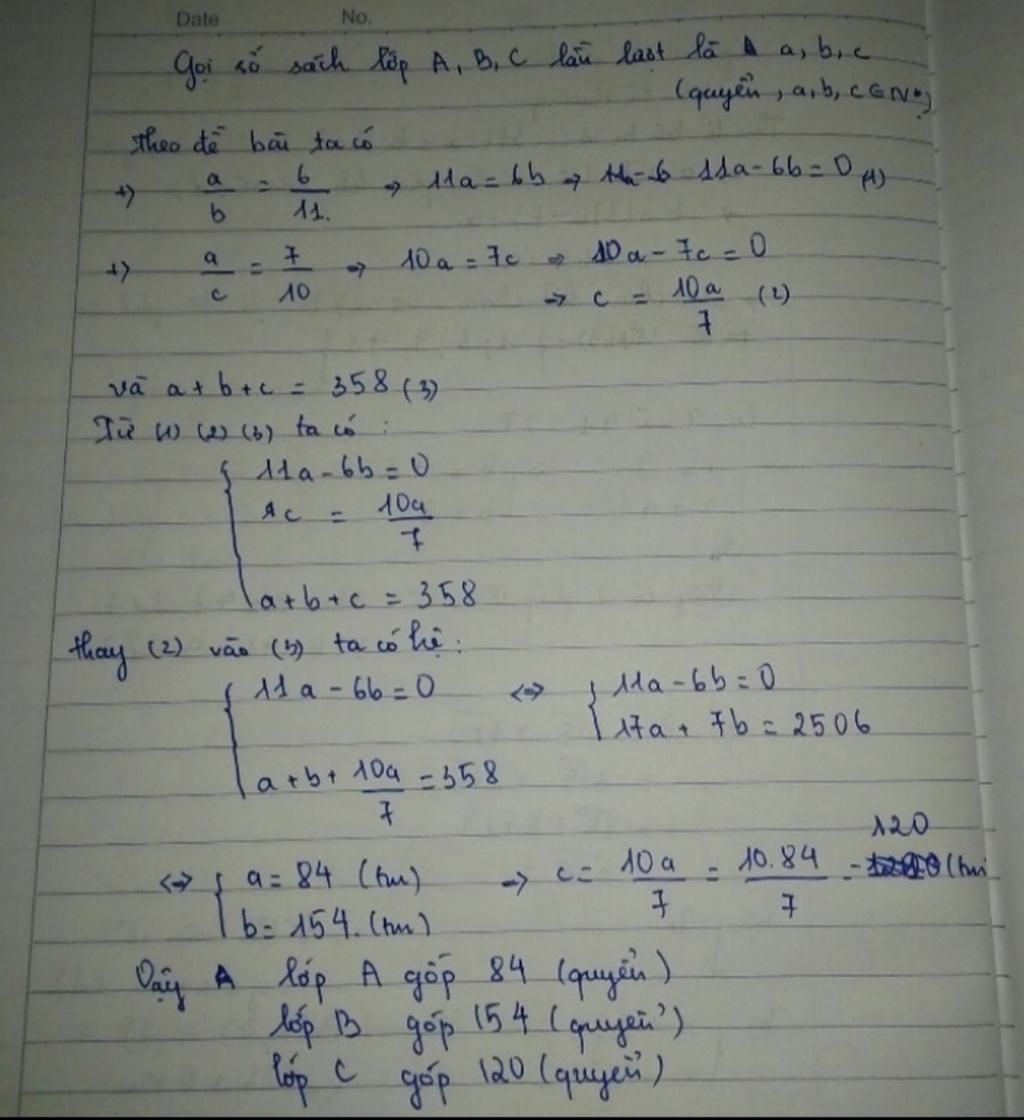 Date No.
Gọi số sách lớp A, B, C lần lượt là a, b, c
(quyển, a, b, c ∈ N*)
Theo đề bài ta có
+) a/b = 6/11. → 11a = 6b → 11a - 6b = 0 (1)
+) a/c = 7/10 → 10a = 7c → 10a - 7c = 0
→ c = 10a/7 (2)
và a + b + c = 358 (3)
Từ (1) (2) (3) ta có :
{ 11a - 6b = 0
c = 10a/7
a + b + c = 358
thay (2) vào (3) ta có hệ :
{ 11a - 6b = 0 <=> { 11a - 6b = 0
17a + 7b = 2506
a + b + 10a/7 = 358
120
<=> { a = 84 (tm) → c = 10a/7 = 10.84/7 = (tm
b = 154. (tm)
Vậy lớp A góp 84 (quyển)
lớp B góp 154 (quyển)
lớp C góp 120 (quyển)